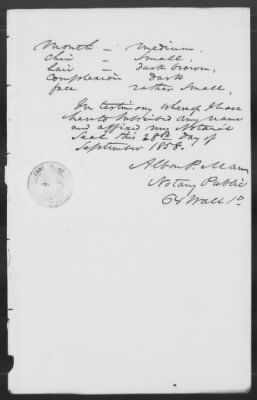 Mouth – medium.
Chin – small.
hair – dark brown,
Complexion dark
face rather small.
In testimony whereof I have
hereto subscribed my name
and affixed my Notarial
Seal this 28th day of
September 1858.
Albon P. Mann
Notary Public
Wall